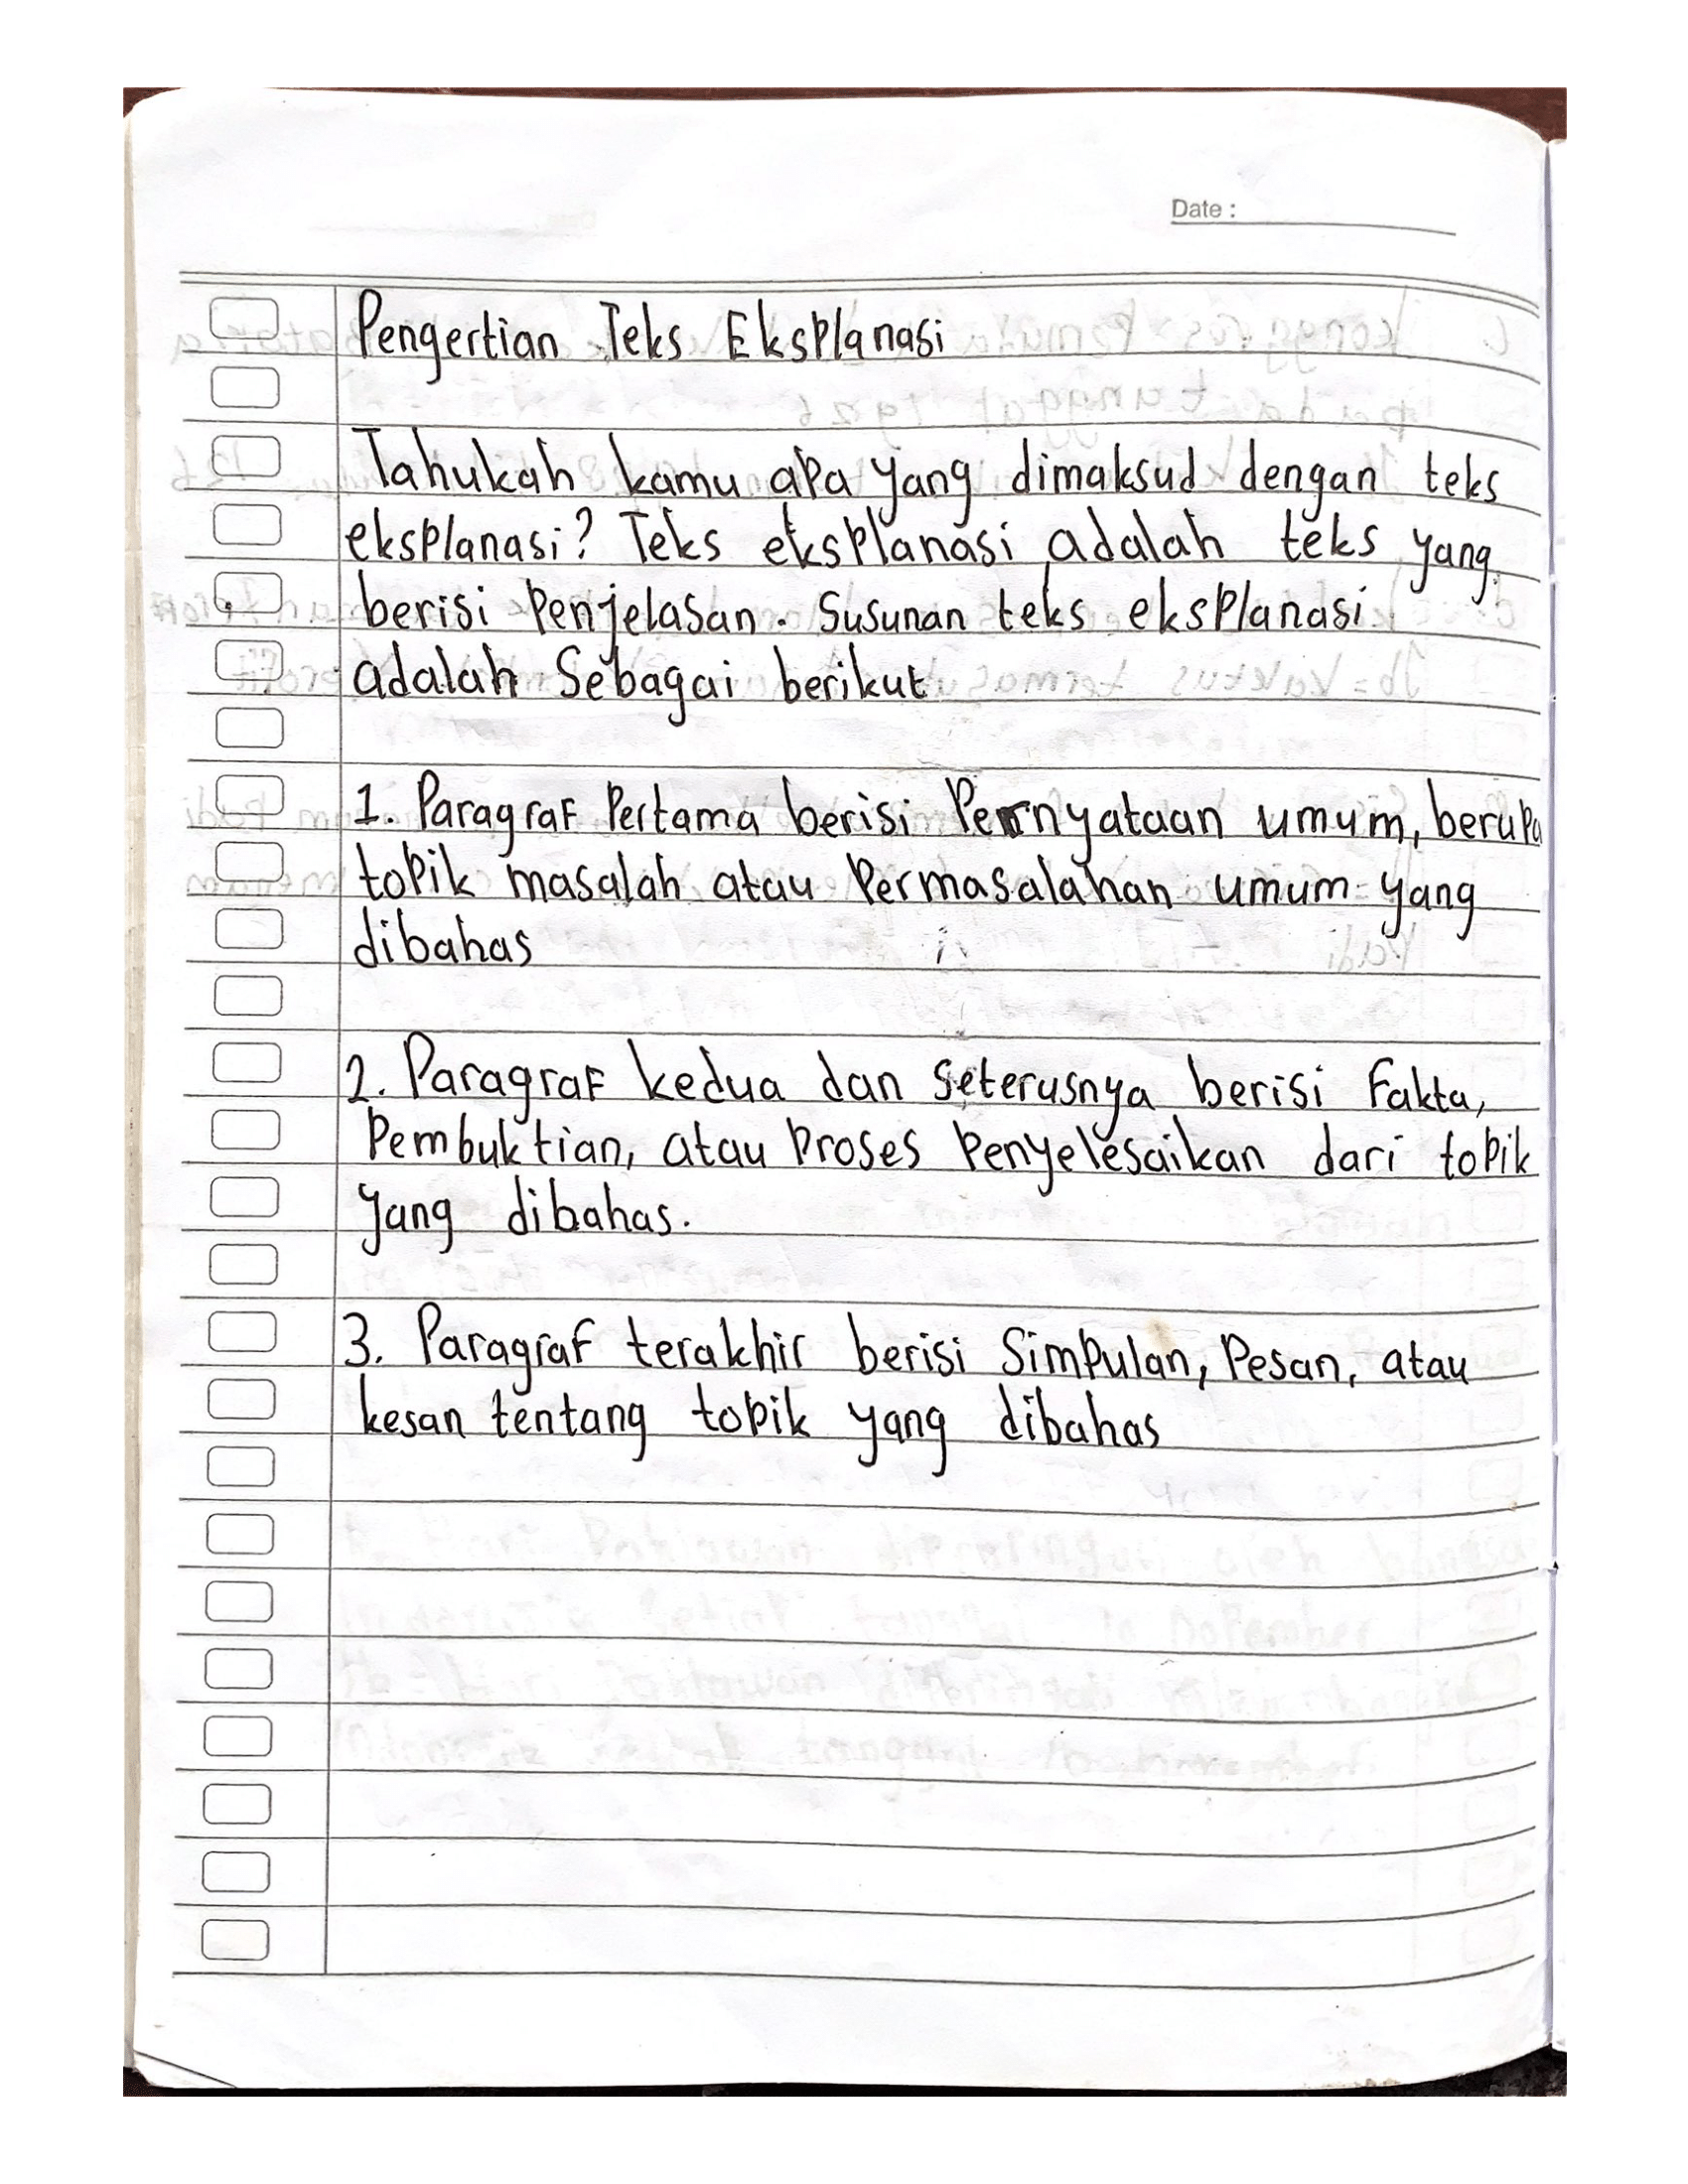 Date :
Pengertian Teks Eksplanasi
Tahukah kamu apa yang dimaksud dengan teks
eksplanasi? Teks eksplanasi adalah teks yang
berisi penjelasan. Susunan teks eksplanasi
adalah Sebagai berikut
1. Paragraf Pertama berisi Pernyataan umum, berupa
topik masalah atau Permasalahan umum yang
dibahas
2. Paragraf kedua dan seterusnya berisi Fakta,
Pembuktian, atau proses penyelesaikan dari topik
yang dibahas.
3. Paragraf terakhir berisi Simpulan, Pesan, atau
kesan tentang topik yang dibahas